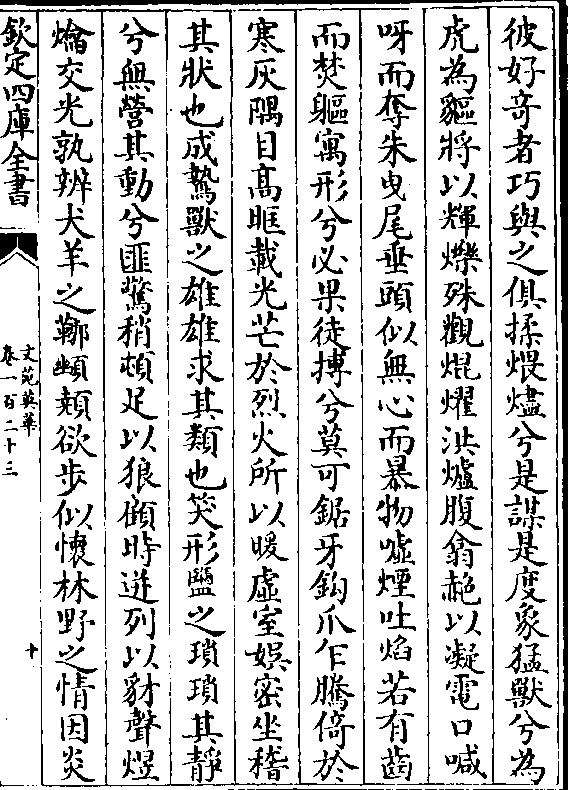 彼好奇者巧與之俱揉煨燼兮是謀是度象猛獸兮為
虎為貙將以輝爍殊觀焜燿洪爐腹翕赩以凝電口㘎
呀而奪朱曳尾垂頭似無心而暴物噓煙吐焰若有齒
而焚軀寓形兮必果徒搏兮莫可鋸牙鈎爪乍騰倚於
寒灰隅目高眶載光芒於烈火所以暖虛室娱密坐稽
其狀也成鷙獸之雄雄求其類也笑形鹽之瑣瑣其靜
兮無營其動兮匪驚稍頓足以狼顧時迸列以豺聲煜
爚交光孰辨犬羊之鞹頳頰欲步似懷林野之情因炎
欽定四庫全書
文苑英華
卷一百二十三
十